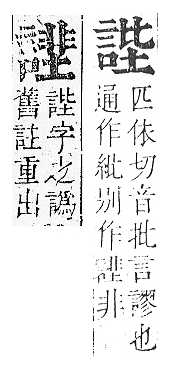 匹依切音批言謬也
通作紕別作非
字之譌
舊註重出